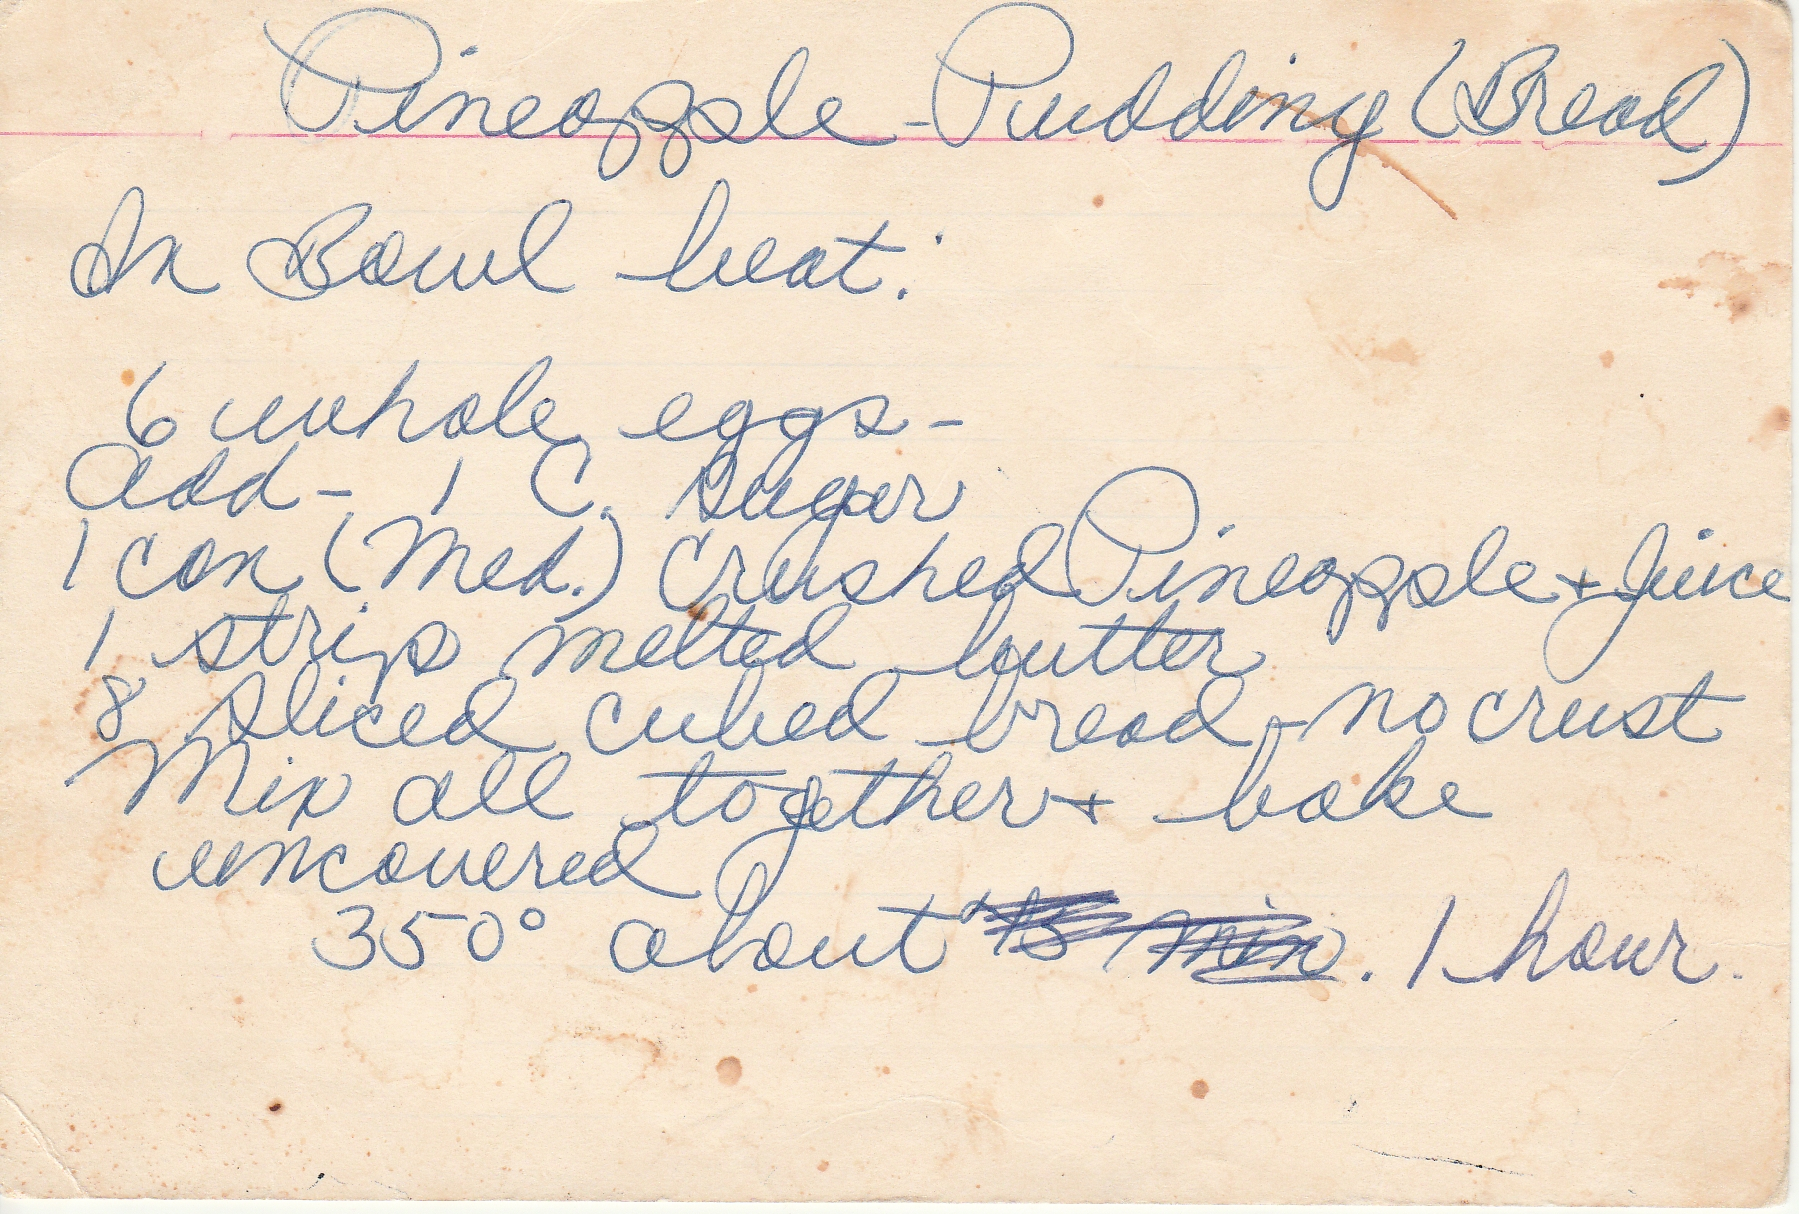 Pineapple-Pudding (Bread)
In Bowl beat:
6 whole eggs-
add - 1 C. Sugar
1 can (Med.) Crushed Pineapple + Juice
1 strip melted butter
8 sliced cubed bread - no crust
Mix all together + bake
uncovered
350° about min. 1 hour.